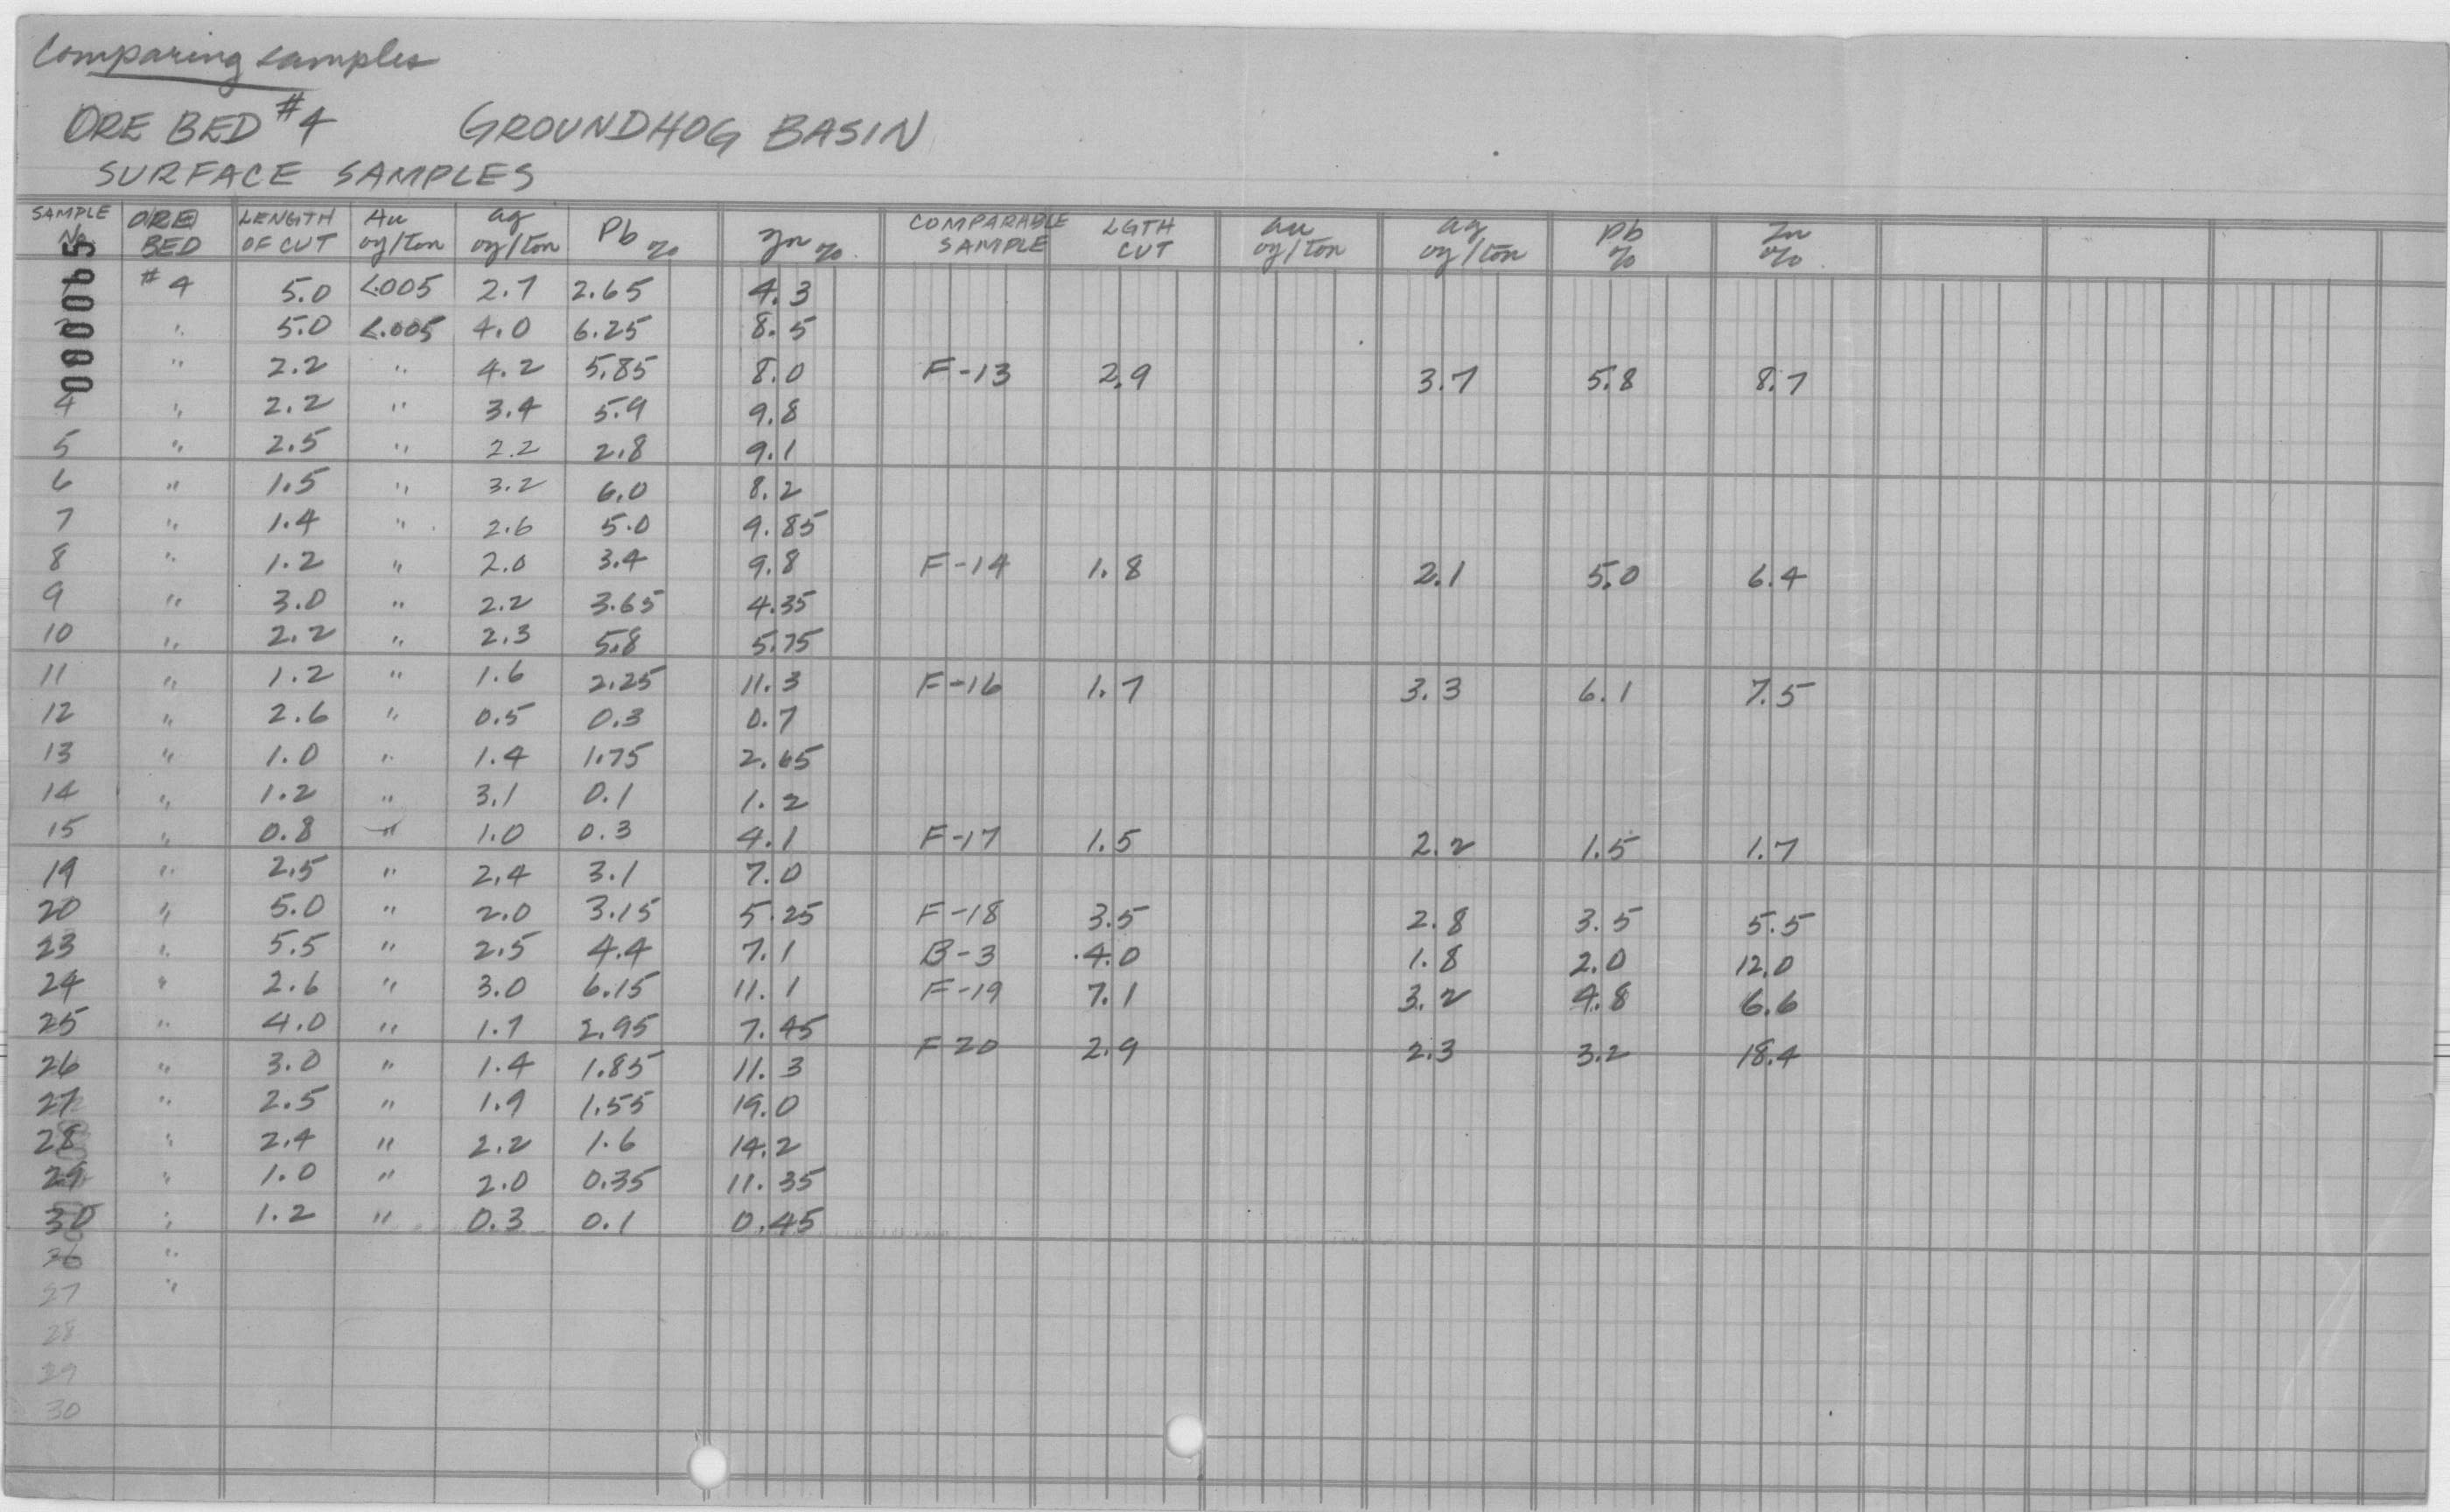 Comparing samples
ORE BED #4 GROUNDHOG BASIN
SURFACE SAMPLES
SAMPLE No. ORE BED LENGTH OF CUT Au oz/ton Ag oz/ton Pb % Zn % COMPARABLE SAMPLE LGTH CUT Au oz/ton Ag oz/ton Pb % Zn %
5900080
#4 5.0 <.005 2.7 2.65 4.3
" 5.0 <.005 4.0 6.25 8.5
" 2.2 " 4.2 5.85 8.0 F-13 2.9 3.7 5.8 8.7
4 " 2.2 " 3.4 5.9 9.8
5 " 2.5 " 2.2 2.8 9.1
6 " 1.5 " 3.2 6.0 8.2
7 " 1.4 " 2.6 5.0 9.85
8 " 1.2 " 2.0 3.4 9.8 F-14 1.8 2.1 5.0 6.4
9 " 3.0 " 2.2 3.65 4.35
10 " 2.2 " 2.3 5.8 5.75
11 " 1.2 " 1.6 2.25 11.3 F-16 1.7 3.3 6.1 7.5
12 " 2.6 " 0.5 0.3 0.7
13 " 1.0 " 1.4 1.75 2.65
14 " 1.2 " 3.1 0.1 1.2
15 " 0.8 " 1.0 0.3 4.1 F-17 1.5 2.2 1.5 1.7
19 " 2.5 " 2.4 3.1 7.0
20 " 5.0 " 2.0 3.15 5.25 F-18 3.5 2.8 3.5 5.5
23 " 5.5 " 2.5 4.4 7.1 B-3 4.0 1.8 2.0 12.0
24 " 2.6 " 3.0 6.15 11.1 F-19 7.1 3.2 4.8 6.6
25 " 4.0 " 1.7 2.95 7.45
F20 2.9 2.3 3.2 18.4
26 " 3.0 " 1.4 1.85 11.3
27 " 2.5 " 1.9 1.55 19.0
28 " 2.4 " 2.2 1.6 14.2
29 " 1.0 " 2.0 0.35 11.35
30 " 1.2 " 0.3 0.1 0.45
26 "
27 "
28
29
30